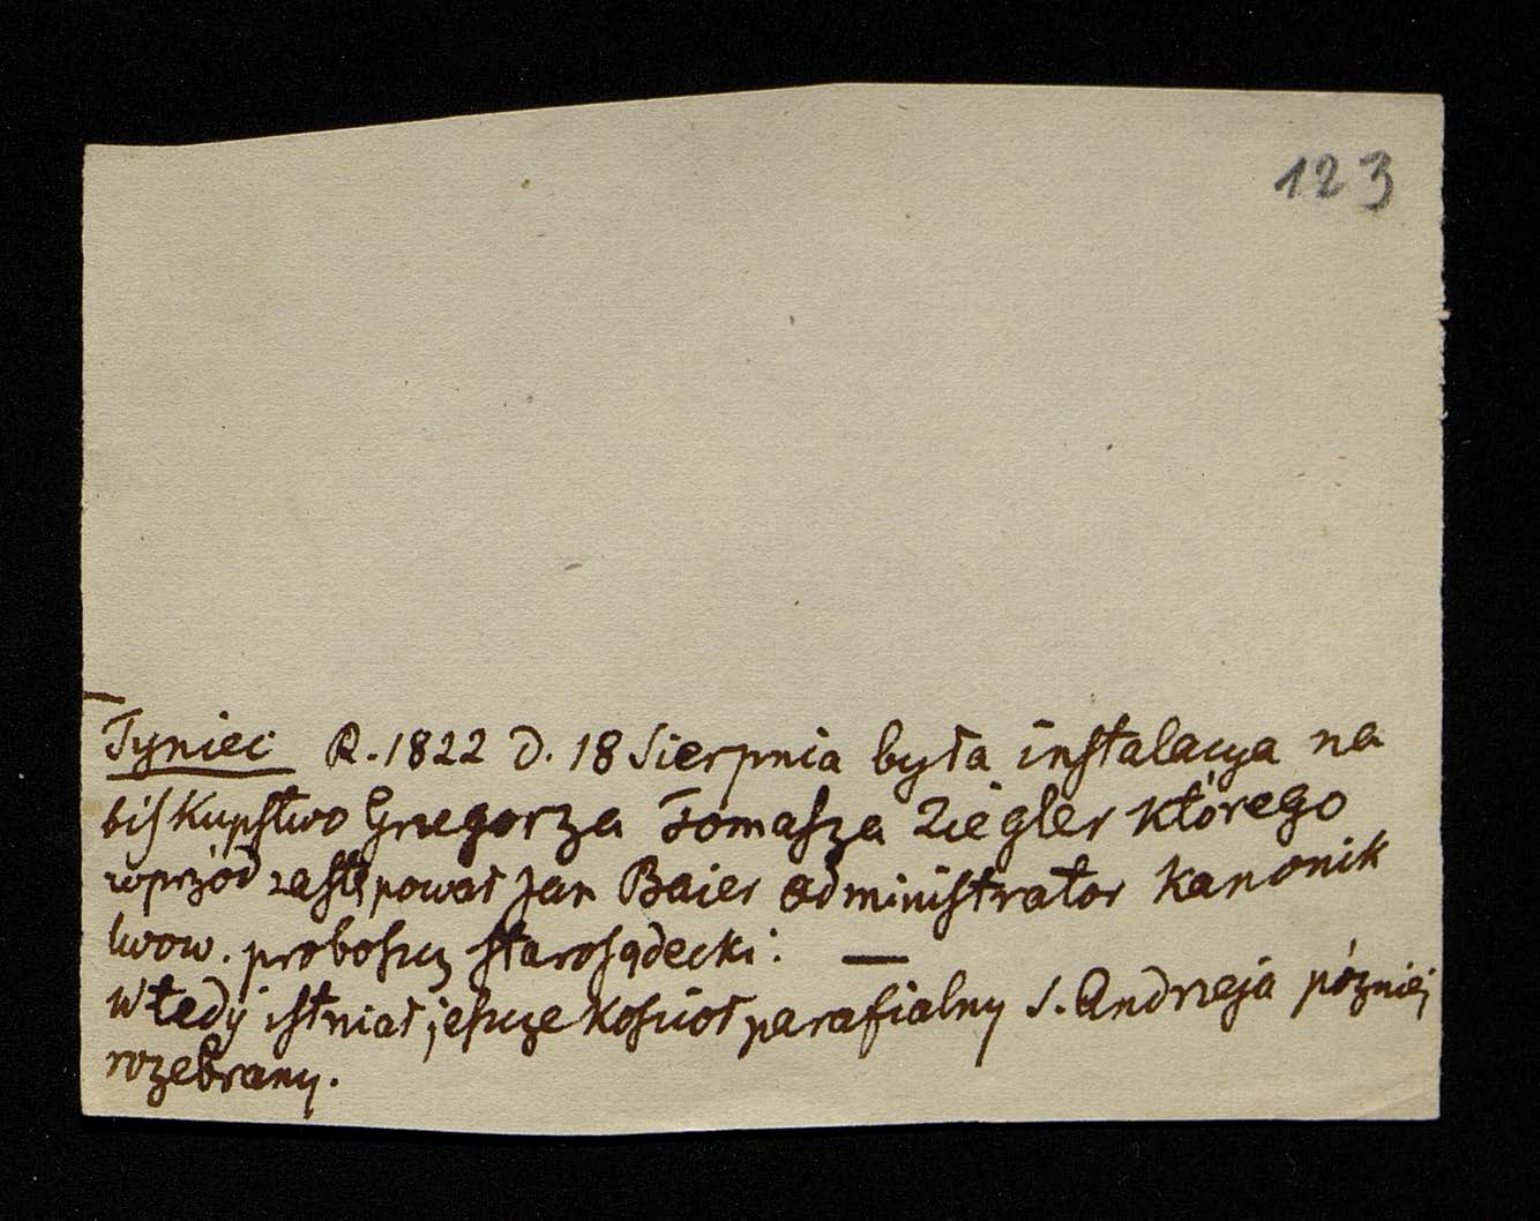 123
Tyniec R. 1822 D. 18 Sierpnia była instalacya na
biskupstwo Grzegorza Tomasza Ziegler którego
wprzód zastępował Jan Baier administrator kanonik
lwow. proboszcz starosądecki: —
Wtedy istniał jeszcze kościoł parafialny S. Andrzeja pózniej
rozebrany.